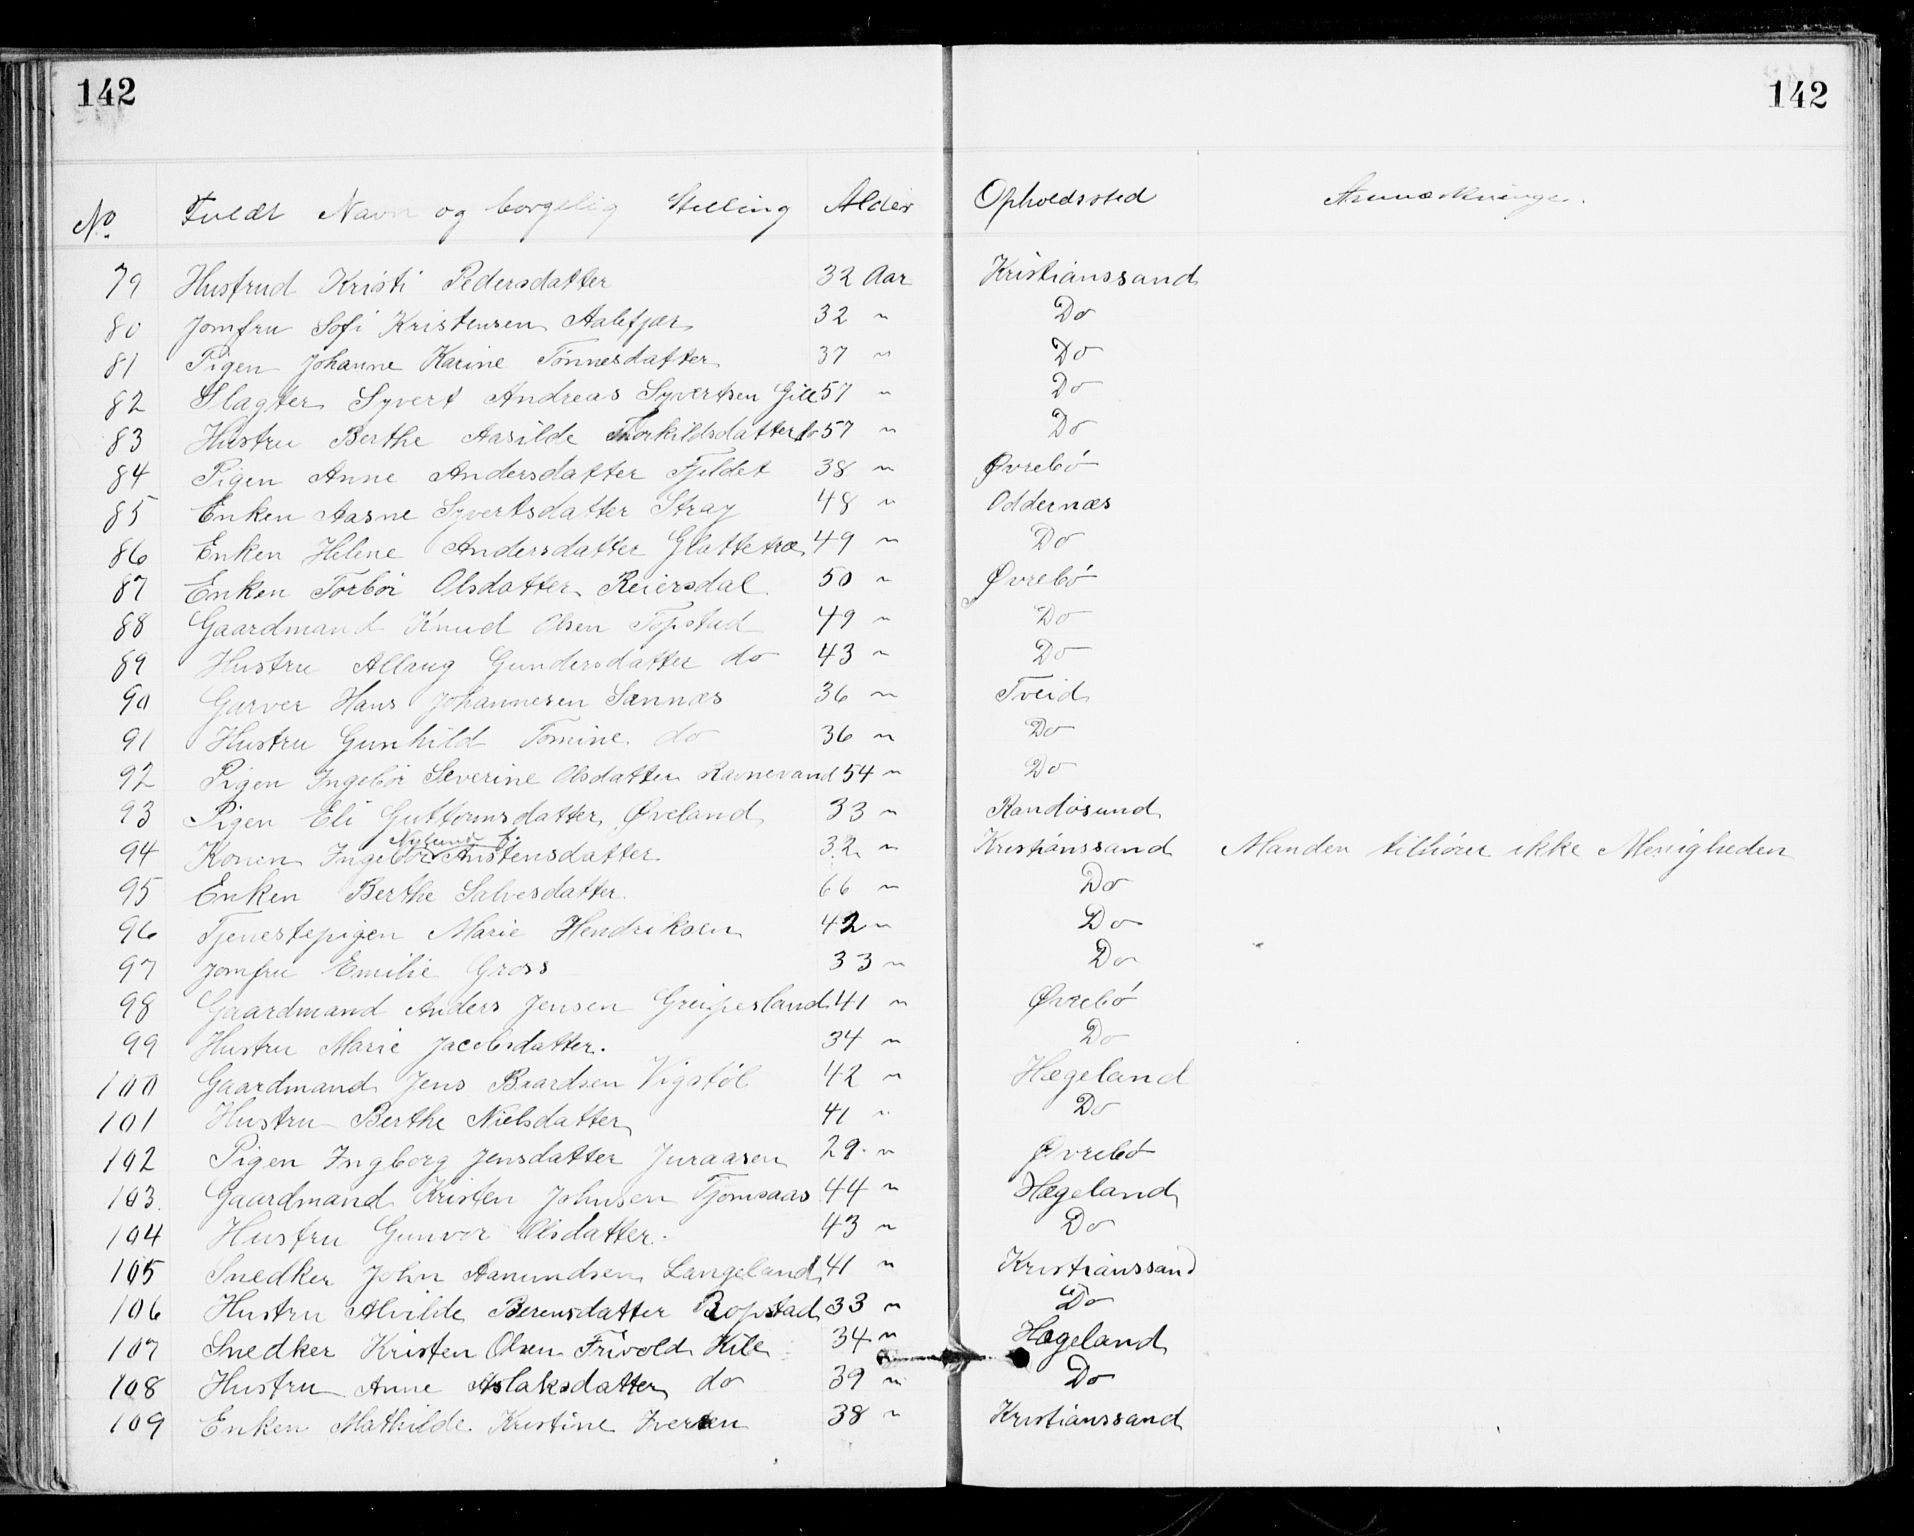 142 142
No. Fuldt Navn og borgelig Stilling Alder Opholdssted Anmærkninger.
79 Hustrud Kristi Pedersdatter 32 Aar Kristianssand
80 Jomfru Sofi Kristensen Aalefjær 32 " Do
81 Pigen Johanne Karine Tønnesdatter 37 " Do
82 Slagter Syvert Andreas Syvertsen Gill 57 " Do
83 Hustru Berthe Aasilde Thorkildsdatter do 57 " Do
84 Pigen Anne Andersdatter Fjeldet 38 " Øvrebø
85 Enken Aasne Syvertsdatter Stray 48 " Oddernæs
86 Enken Helene Andersdatter Glattetræ 49 " Do
87 Enken Torbør Olsdatter Reiersdal 50 " Øvrebø
88 Gaardmand Knud Olsen Topstad 49 " Do
89 Hustru Allaug Gundersdatter do 43 " Do
90 Garver Hans Johannesen Sannæs 36 " Tveid
91 Hustru Gunhild Tomine do 36 " Do
92 Pigen Ingebør Severine Olsdatter Ravnevand 54 " Do
93 Pigen Eli Guttormsdatter Øveland 33 " Randøsund
94 Konen Ingebør Anstensdatter 32 " Kristianssand Manden tilhører ikke Menigheden
95 Enken Berthe Salvesdatter 66 " Do
96 Tjenestepigen Marie Hendriksen 42 " Do
97 Jomfru Emilie Gross 33 " Do
98 Gaardmand Anders Jensen Greipesland 41 " Øvrebø
99 Hustru Marie Jacobsdatter. 34 " Do
100 Gaardmand Jens Baardsen Vigstøl 42 " Hægeland
101 Hustru Berthe Nielsdatter 41 " Do
102 Pigen Ingborg Jensdatter Juraasen 29 " Øvrebø
103. Gaardmand Kristen Johnsen Tjomsaas 44 " Hægeland
104 Hustru Gunvor Olsdatter. 43 " Do
105 Snedker John Aanundsen Langeland 41 " Kristianssand
106 Hustru Alvilde Berensdatter Ropstad 33 " Do
107 Snedker Kristen Olsen Frivold Kile 34 " Hægeland
108 Hustru Anne Aslaksdatter do 39 " Do
109 Enken Mathilde Kristine Iversen 38 " Kristianssand